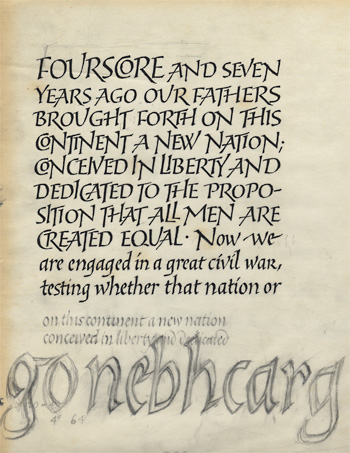 FOURSCORE AND SEVEN
YEARS AGO OUR FATHERS
BROUGHT FORTH ON THIS
CONTINENT A NEW NATION;
CONCEIVED IN LIBERTY AND
DEDICATED TO THE PROPO-
SITION THAT ALL MEN ARE
CREATED EQUAL · Now we
are engaged in a great civil war,
testing whether that nation or
on this continent a new nation
conceived in liberty and dedicated
go nebhcarg
64